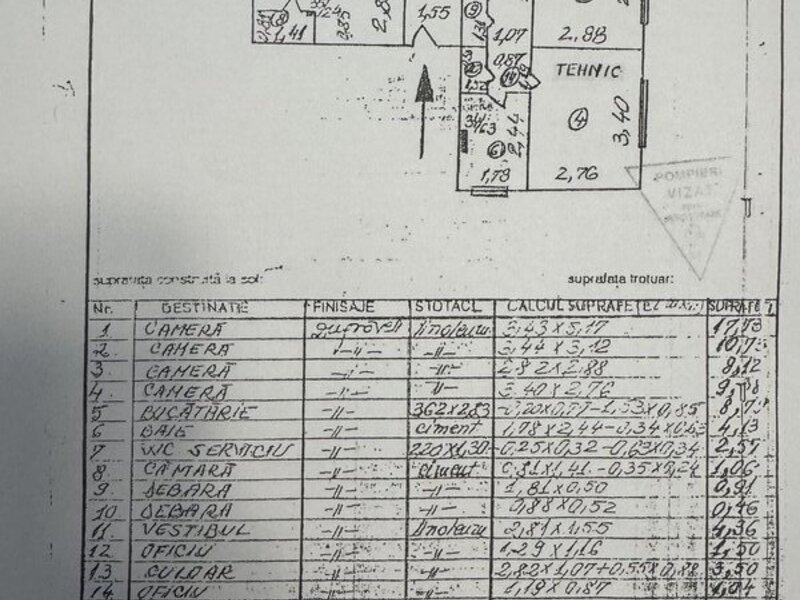 1,55
2,85
0,81
8
1,41
9
1,07
2,88
0,87
14
1,32
TEHNIC
4
3,40
6
2,44
1,78
2,76
POMPIERI
VIZAT
suprafața construită la sol:
suprafața trotuar:
Nr. DESTINAȚIE FINISAJE STOTACL CALCUL SUPRAFE
1 CAMERĂ linoleum 3,43x5,17 17,73
2. CAMERĂ -//- -//- 3,44 x 3,12 10,73
3. CAMERĂ -//- -//- 2,82x2,88 8,12
4. CAMERĂ -//- -//- 3.40 x 2,76 9,38
5 BUCĂTĂRIE -//- 362x2,83 -0,20x0,77-1,53x0,85
6 BAIE -//- ciment 1,78x2,44-0,34x0,63 4,13
7 WC SERVICIU -//- 220x1,30 -0,25x0,32-0,63x0,34 2,57
8. CĂMARĂ -//- ciment 0,81x1,41-0,35x0,24 1,06
9 DEBARA -//- -//- 1,81x0,50 0,91
10 DEBARA -//- -//- 0,88x0,52 0,46
11. VESTIBUL -//- linoleum 2,81x1,55 4,36
12 OFICIU -//- -//- 1,29x1,16 1,50
13 CULOAR -//- -//- 2,82x1,07+0,55x0,88 3,50
14 OFICIU -//- -//- 1,19x0,87 1,04